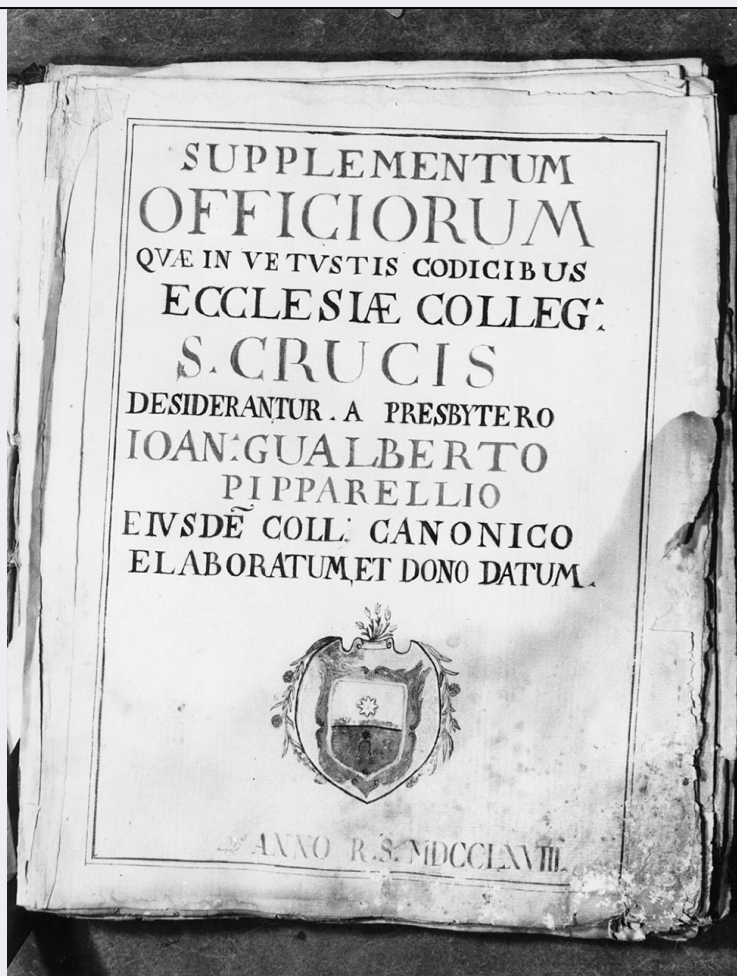 SUPPLEMENTUM
OFFICIORUM
QVÆ IN VETVSTIS CODICIBUS
ECCLESIÆ COLLEG:
S. CRUCIS
DESIDERANTUR. A PRESBYTERO
IOAN: GUALBERTO
PIPPARELLIO
EIVSDẼ COLL: CANONICO
ELABORATUM, ET DONO DATUM.
ANNO R.S. MDCCLXVIII.